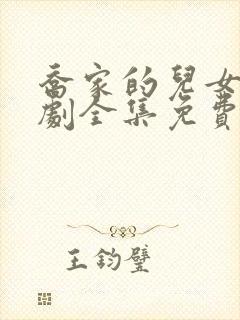 喬家的兒女
劇全集免費
王鈞璧